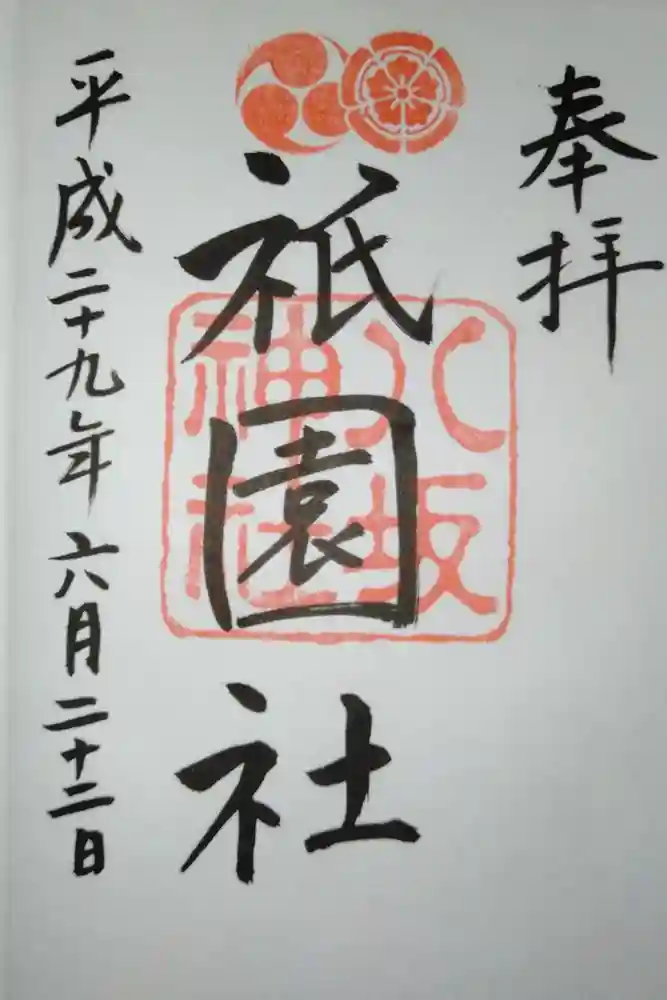 奉拝
祇園社
八坂
神社
平成二十九年六月二十二日